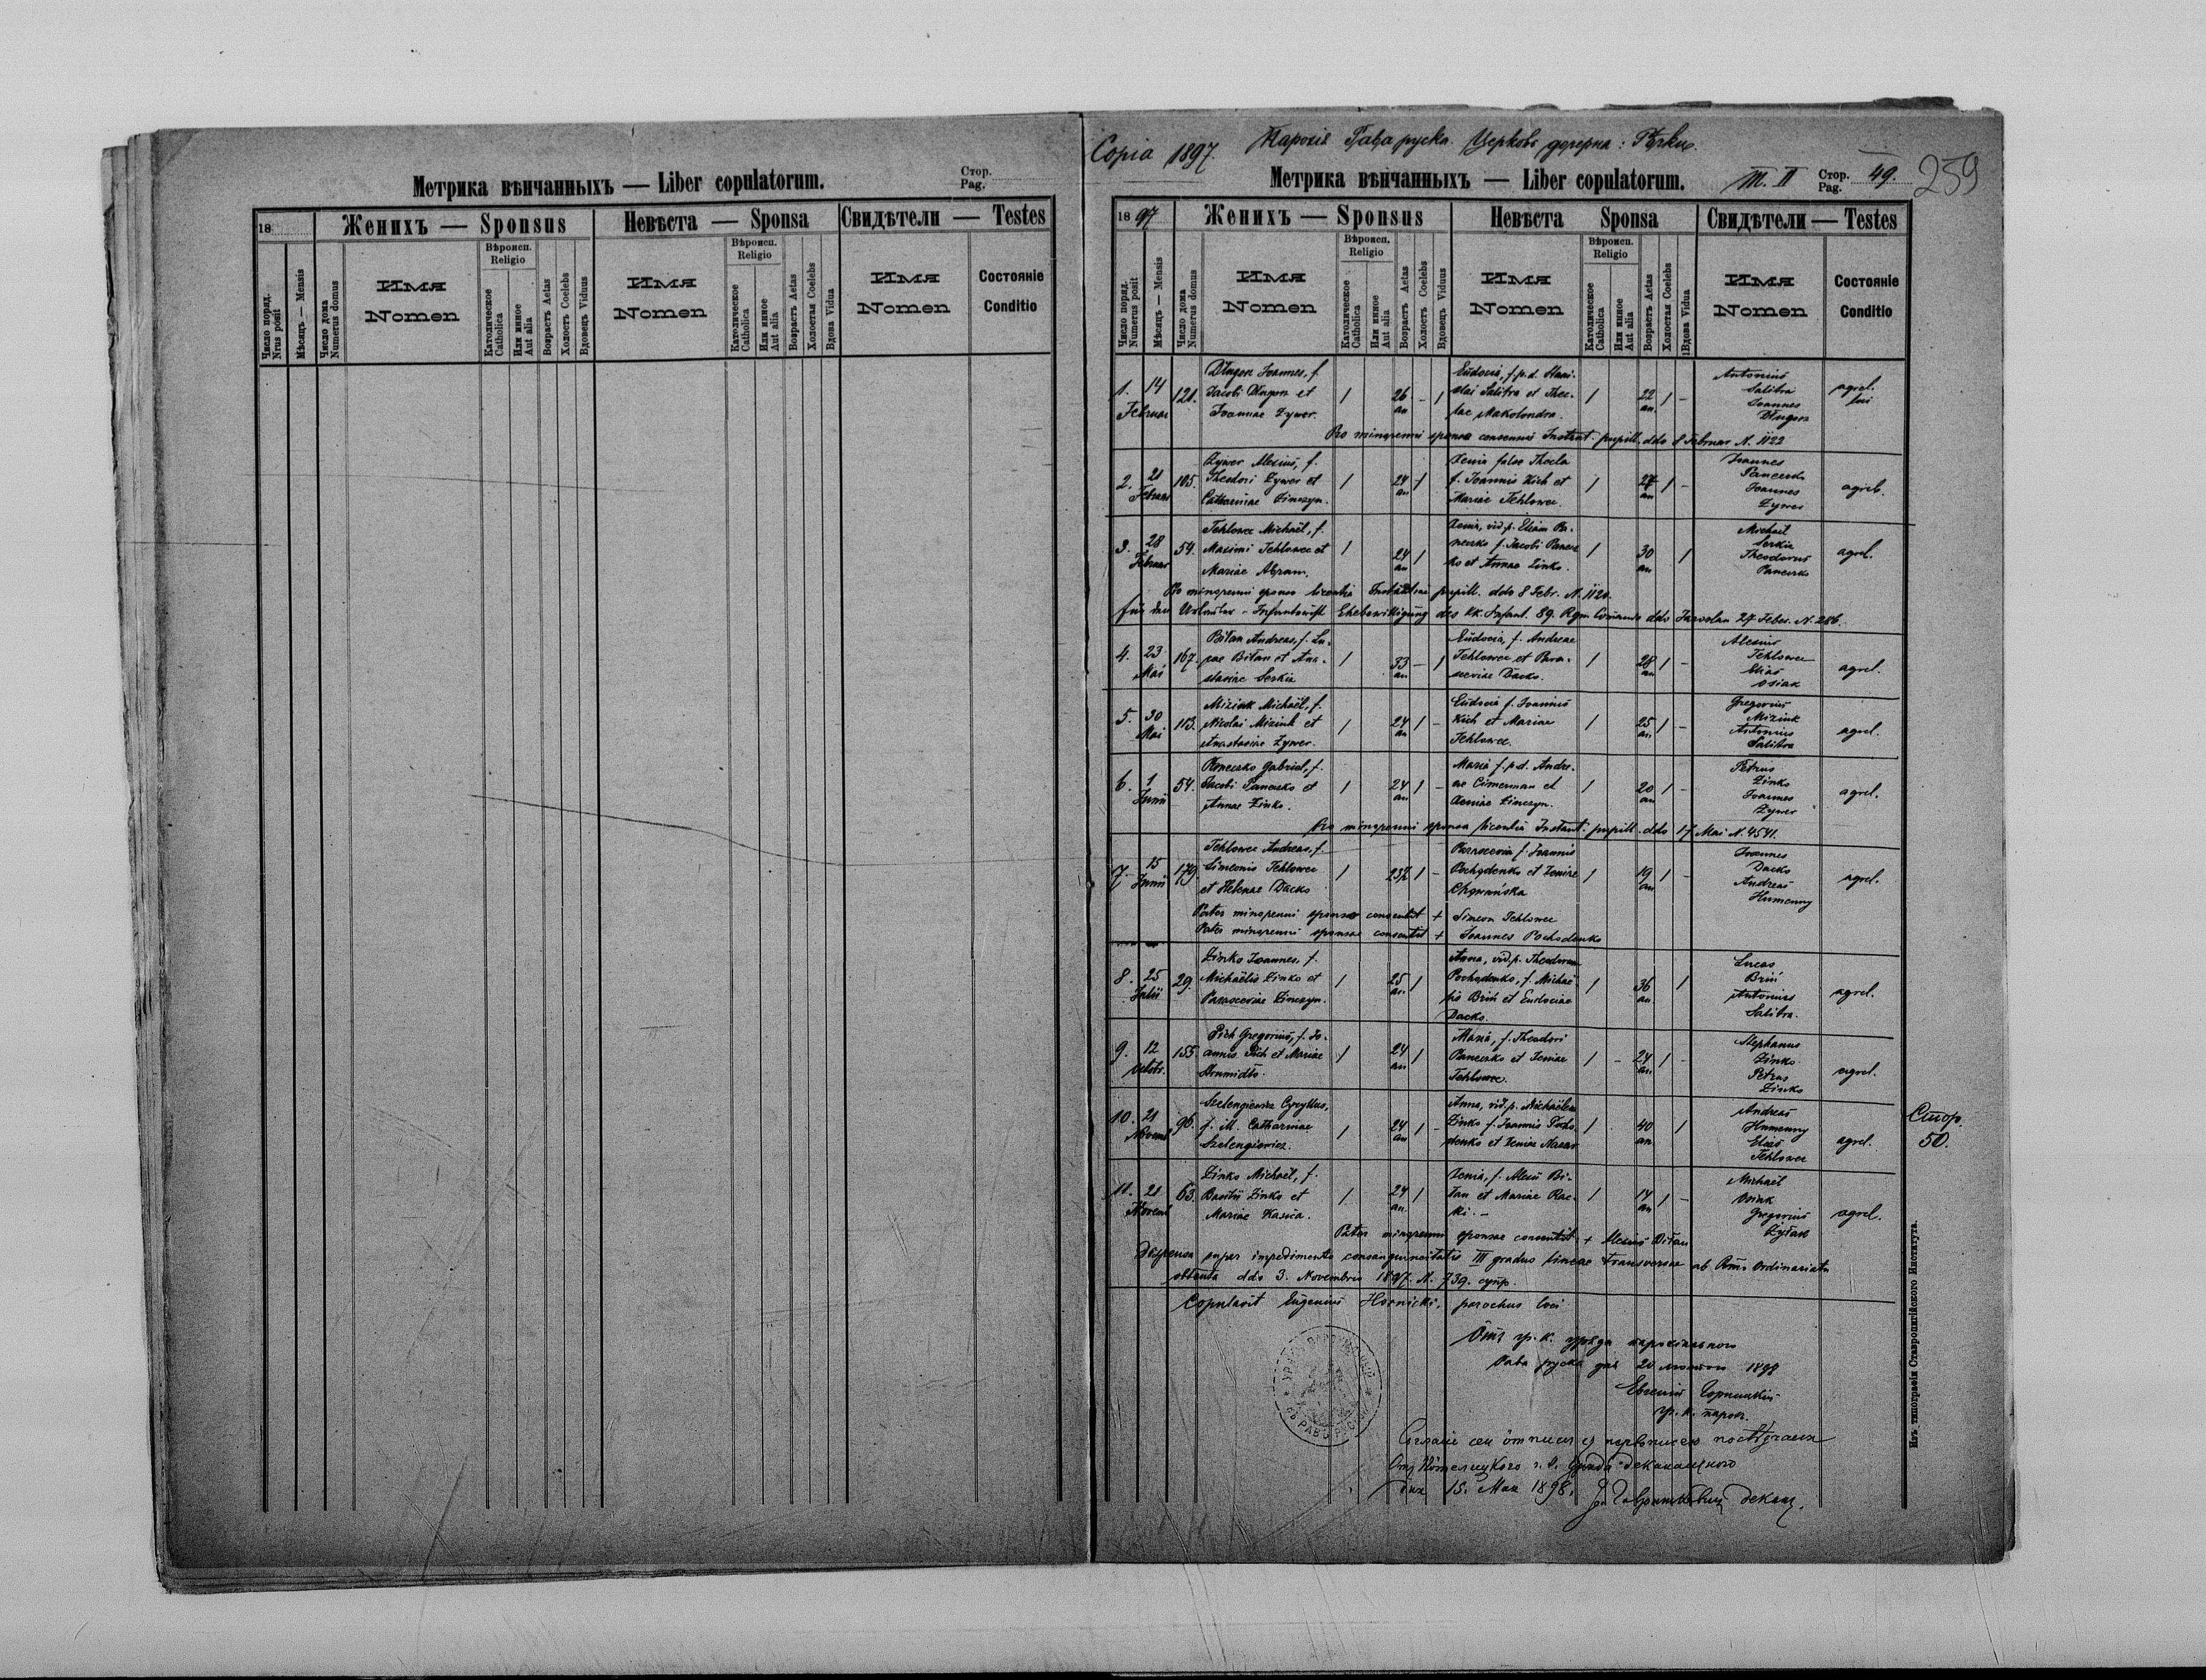 Метрика вѣнчанныхъ — Liber copulatorum.
Стор.
Pag.
18
Женихъ — Sponsus
Невѣста — Sponsa
Свидѣтели — Testes
Число поряд.
Nrus posit
Мѣсяцъ — Mensis
Число дома
Numerus domus
Имя
Nomen
Вѣроисп.
Religio
Католическое
Catholica
Или иное
Aut alia
Возрастъ Aetas
Холостъ Coelebs
Вдовецъ Viduus
Имя
Nomen
Вѣроисп.
Religio
Католическое
Catholica
Или иное
Aut alia
Возрастъ Aetas
Холостая Coelebs
Вдова Vidua
Имя
Nomen
Состояніе
Conditio
Copia 1897. Парохія Рава руска. Церковь дочерна:
Метрика вѣнчанныхъ — Liber copulatorum.
Т. II
Стор.
Pag. 49.
259
1897
Женихъ — Sponsus
Невѣста Sponsa
Свидѣтели — Testes
Число поряд.
Numerus posit
Мѣсяцъ — Mensis
Число дома
Numerus domus
Имя
Nomen
Вѣроисп.
Religio
Католическое
Catholica
Или иное
Aut alia
Возрастъ Aetas
Холостъ Coelebs
Вдовецъ Viduus
Имя
Nomen
Вѣроисп.
Religio
Католическое
Catholica
Или иное
Aut alia
Возрастъ Aetas
Холостая Coelebs
Вдова Vidua
Имя
Nomen
Состояніе
Conditio
1. 14 Februar 121.
Długosz Joannes, f.
Jacobi Długosz et
Joannae Zywer.
/ 26 an - /
Eudocia, f. p. d. Stani-
slai Salitra et Thec-
lae Makolondra.
/ 22 an. / -
Antonius
Salitra
Joannes
Długosz
agrel.
Pro minorenni sponsa consensus Instant. pupill. ddo 8 Februar N. 1122
2. 21 Februar 105.
Zywer Alexius, f.
Theodori Zywer et
Catharinae Zinczyn.
/ 24 an /
Xenia false Thecla
f. Joannis Kich et
Mariae Tehlowec.
/ 27 an / -
Joannes
Joannes
Zywer
agric.
3. 28 Februar 54.
Tehlowec Michaël, f.
Maximi Tehlowec et
Mariae Abram.
/ 24 an /
Xenia, vid. p. Eliam Pa-
necsko f. Jacobi Panecs-
ko et Annae Zinko.
/ 30 an /
Michael
Serkiz
Theodorus
Panecsko
agrel.
Pro minorenni sponso licentia Instantiae pupill. ddo 8 Febr. N. 1120.
für den Urlauber - Infanterist Ehebewilligung des kk. Infant. 89. Rgm. Comando ddo Jaroslau 27 Feber. N. 286.
4. 23 Mai 167.
Bitan Andreas, f. Lu-
cae Bitan et Ana-
stasiae Serkiz
/ 33 an - /
Eudocia, f. Andreae
Tehlowec et Para-
sceviae Dacko.
/ 28 an / -
Alexius
Tehlowec
Elias
Osiak
agrel.
5. 30 Mai 113.
Miziuk Michaël, f.
Nicolai Miziuk et
Anastasiae Zywer.
/ 24 an / -
Eudocia f. Joannis
Kich et Mariae
Tehlowec.
/ 25 an / -
Gregorius
Miziuk
Antonius
Salitra
agrel.
6. 1 Junii 54.
Panecsko Gabriel, f.
Jacobi Panecsko et
Annae Zinko.
/ 24 an / -
Maria f. p. d. Andre-
ae Cimerman et
Xeniae Zinczyn.
/ 20 an / -
Petrus
Zinko
Joannes
Zywer
agrel.
Pro minorenni sponsa licentia Instant. pupill. ddo 17 Mai N. 4541.
7. 15 Junii 179.
Tehlowec Andreas, f.
Simeonis Tehlowec
et Helenae Dacko
/ 23½ / -
Parascevia f. Joannis
Pochodenko et Xeniae
/ 19 an / -
Joannes
Dacko
Andreas
Humenny
agrel.
Pater minorenni sponso consentit + Simeon Tehlowec
Pater minorenni sponsae consentit + Joannes Pochodenko
8. 25 Julii 29.
Zinko Joannes, f.
Michaëlis Zinko et
Parasceviae Zinczyn.
/ 25 an. /
Anna, vid. p. Theodorum
Pochodenko, f. Michaë-
lis Briń et Eudociae
Dacko.
/ 36 an. /
Lucas
Briń
Antonius
Salitra.
agrel.
9. 12 Octobr. 155.
Pich Gregorius, f. Jo-
annis Pich et Mariae
/ 24 an /
Maria, f. Theodori
Panecsko et Xeniae
Tehlowec.
/ - 24 an. / -
Stephanus
Zinko
Petrus
Zinko
agrel.
10. 21 Novemb 96.
Szelengiewicz Cyryllus,
f. ill. Catharinae
Szelengiewicz.
/ 24 an / -
Anna, vid. p. Michaëlem
Zinko f. Joannis Pocho-
denko et Xeniae Mazur
/ 40 an /
Andreas
Humenny
Elias
Tehlowec
agrel.
Стор.
50.
11. 21 Novemb 63.
Zinko Michaël, f.
Basilii Zinko et
Mariae Kasicia.
/ 24 an. /
Xenia, f. Alexii Bi-
tan et Mariae Rac-
ki. -
/ 17 an / -
Michaël
Osiak
Gregorius
agrel.
Pater minorenni sponsae consentit + Alexius Bitan
Dispensa super impedimento consanguineitatis III gradus lineae transversae ab Rmo Ordinariatu
obtenta ddo 3. Novembris 1897. N. 739.
Copulavit Eugenius Hornicki, parochus loci
Отъ гр. к. уряда парохіального
Рава руска дня 20 1898
Евгеній Горницкій
гр. к. парох.
дня 15. Мая 1898.
декан.
Изъ типографіи Ставропигійского Института.